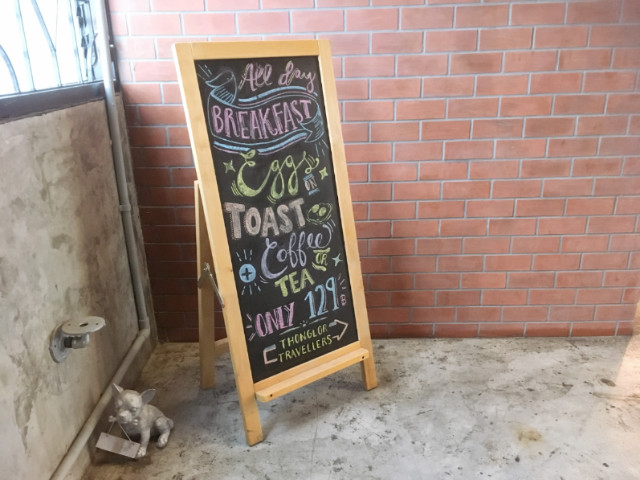 All day
BREAKFAST
Eggs
TOAST
Coffee
OR
TEA
ONLY 129 B
THONGLOR
TRAVELLERS